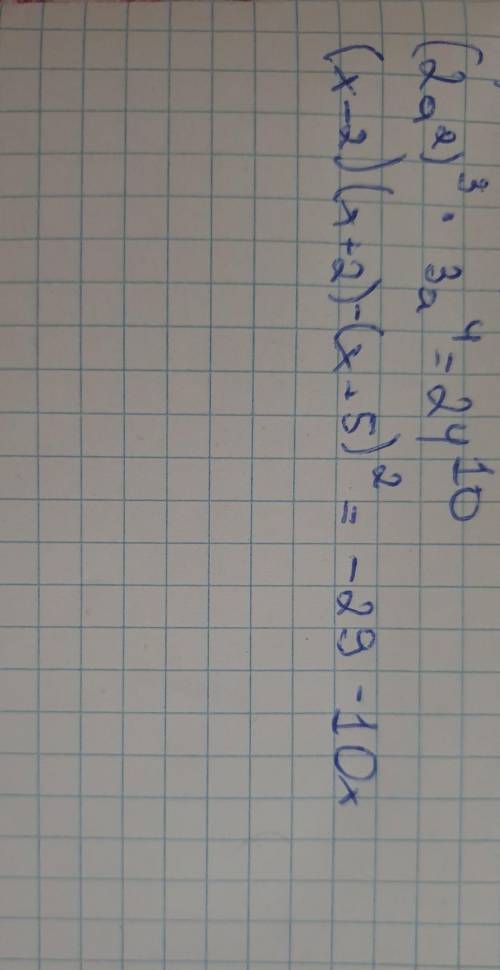 (2a²)³ · 3a⁴ = 24¹⁰
(x-2)(x+2)-(x+5)² = -29 -10x